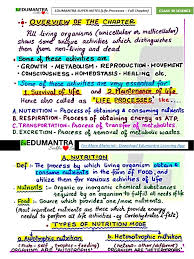 EDUMANTRA SUPER NOTES [Life Processes - Full Chapter]
CLASS 10 SCIENCE
OVERVIEW OF THE CHAPTER
All living organisms (unicellular or multicellular)
shows some unique activities which distinguishes
them from non-living and dead
Some of these activities are
GROWTH - METABOLISM - REPRODUCTION - MOVEMENT
- CONSCIOUSNESS - HOMEOSTASIS - HEALING etc.
Some of these activities are very essential for
1. Survival of Life and 2. Maintenance of Life
Hence also called as "LIFE PROCESSES" like
1. NUTRITION - Process of obtaining & consuming nutrients
2. RESPIRATION - Process of obtaining energy as ATP
3. TRANSPORTATION - Process of transfer of metabolites
4. EXCRETION - Process of removal of metabolic wastes
EDUMANTRA
A. NUTRITION
Def - The process by which living organism obtain &
consume nutrients in the form of FOOD, and
utilize them for various activities of life
Nutrients - Organic or inorganic chemical substances
required by an organism to fulfill all needs of life
Food - Source of nutrients
(Most important nutrients are those which provide energy
to perform all life activities eg-Carbohydrates & fats)
TYPES OF NUTRITION MODE
a. Autotrophic nutrition
b. Heterotrophic nutrition